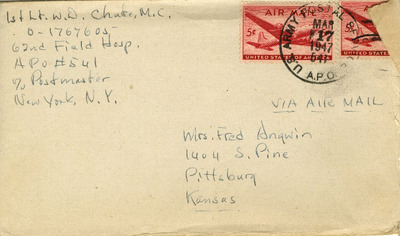 1st Lt. W.D. Chute, M.C.
O-1767605
62nd Field Hosp.
APO #541
% Postmaster
New York, N.Y.
AIR MAIL
5¢
UNITED STATES OF AMERICA
U.S. ARMY POSTAL
MAR
17
1947
A.P.O.
5¢
UNITED STATES
VIA AIR MAIL
Mrs. Fred Angwin
1404 S. Pine
Pittsburg
Kansas